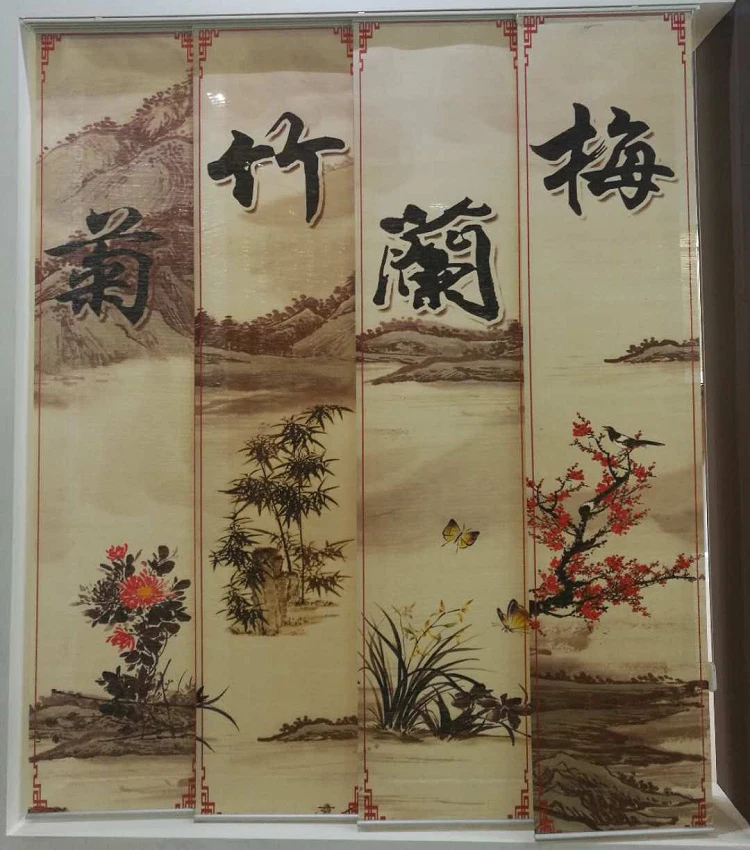 梅
蘭
竹
菊